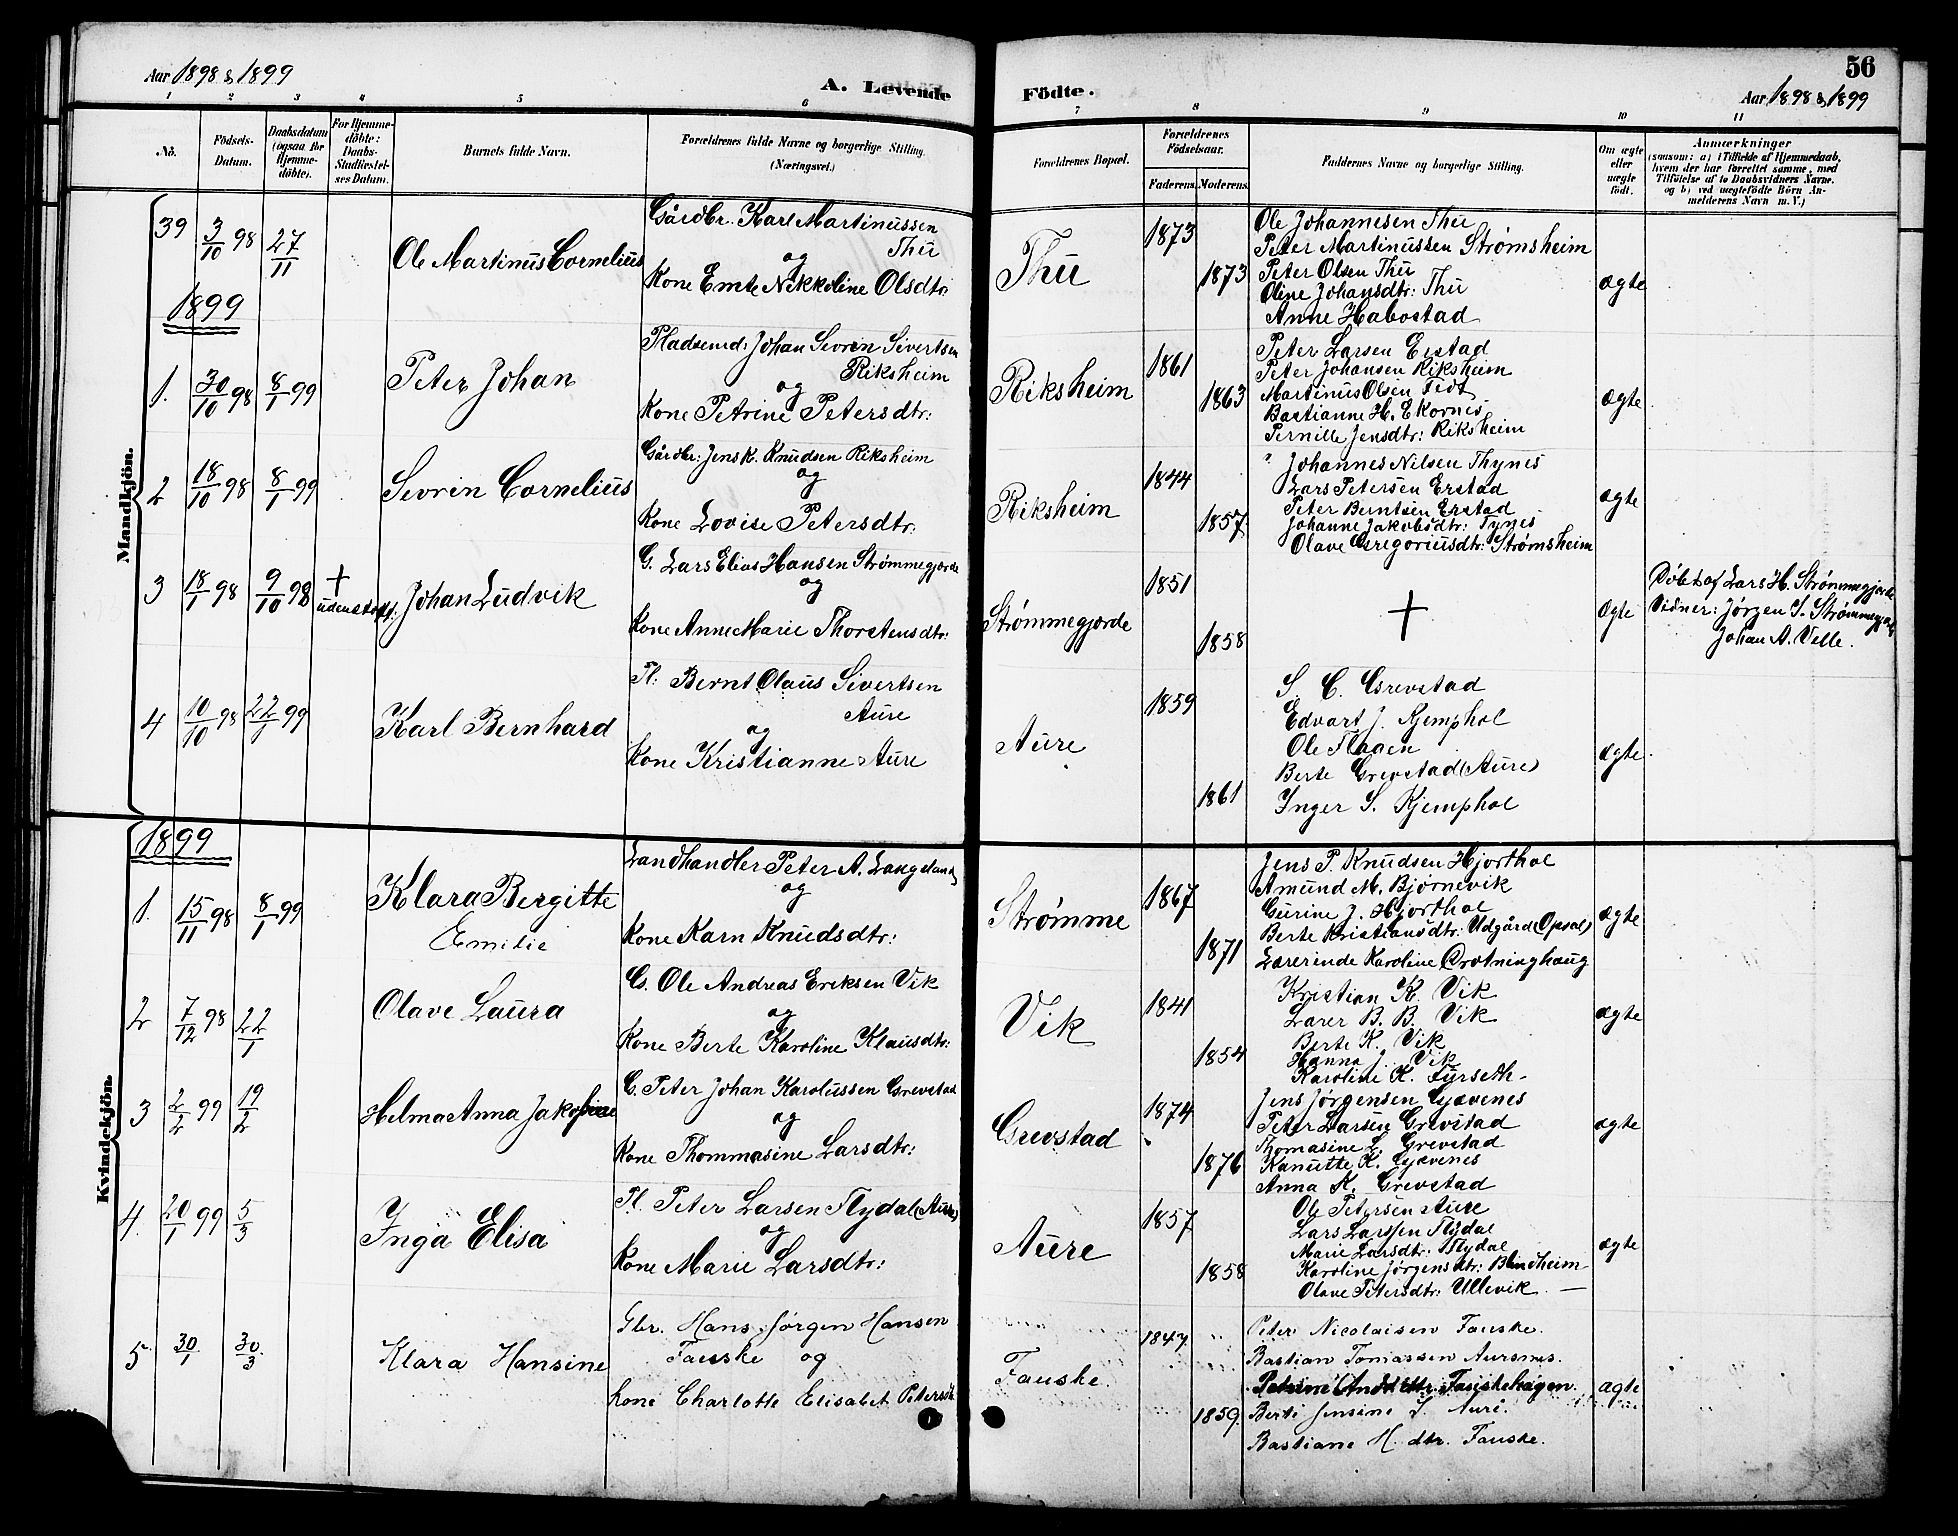 Aar 1898 & 1899
A. Levende
Födte.
56
Aar 1898 & 1899
1 2 3 4 5 6 7 8 9 10 11
No.
Födsels-Datum.
Daabsdatum (ogsaa for Hjemme-döbte).
For Hjemme-döbte: Daabs-Stadfæstel-ses Datum.
Barnets fulde Navn.
Forældrenes fulde Navne og borgerlige Stilling. (Næringsvei.)
Forældrenes Bopæl.
Forældrenes Födselsaar.
Faderens. Moderens.
Faddernes Navne og borgerlige Stilling.
Om ægte eller uægte födt.
Anmærkninger
(saasom: a) i Tilfælde af Hjemmedaab, hvem der har forrettet samme, med Tilföielse af to Daabsvidners Navne. og b) ved uægtefödte Börn An-melderens Navn m. V.)
Mandkjön.
39 3/10 98 27/11
Ole Martinus Cornelius
Gårdbr. Karl Martinussen
Thu
og
Kone Emte Nikkoline Olsdtr:
Thu
1873
1873
Ole Johannesen Thu
Peter Martinussen Strømsheim
Peter Olsen Thu
Oline Johansdtr: Thu
Anne Habostad
ægte
1899
1. 30/10 98 8/1 99
Peter Johan
Pladsemd: Johan Sevrin Sivertsen
Riksheim
og
Kone Petrine Petersdtr:
Riksheim
1861
1863
Peter Larsen Erstad
Peter Johansen Riksheim
Martinus Olsen Tedt
Bastianne H. Ekornes
Pernille Jensdtr: Riksheim
ægte
2 18/10 98 8/1 99
Sevrin Cornelius
Gårdbr: Jens K. Knudsen Riksheim
og
Kone Lovise Petersdtr:
Riksheim
1844
1857
Johannes Nilsen Thynes
Lars Petersen Erstad
Peter Berntsen Erstad
Johanne Jakobsdtr: Tynes
Olave Gregoriusdtr: Strømsheim
ægte
3 18/1 98 9/10 98 +
Johan Ludvik
G. Lars Elias Hansen Strømmegjerde
og
Kone Anne Marie Thorstensdtr:
Strømmegjerde
1851
1858
+
ægte
Døbt af Lars H. Strømmegjerde
Vidner: Jørgen S. Strømmegjerde
Johan A. Velle.
4 10/10 98 22/1 99
Karl Bernhard
Pl: Bernt Olaus Sivertsen
Aure
og
Kone Kristianne Aure
Aure
1859
1861
S. C. Grevstad
Edvart J. Kjemphol
Ole Flaaen
Berte Grevstad (Aure)
Inger S. Kjemphol
ægte
Kvindekjön.
1899
1. 15/11 98 8/1 99
Klara Bergitte
Emilie
Landhandler Peter A. Langeland
og
Kone Karn Knudsdtr:
Strømme
1867
1871
Jens P. Knudsen Hjorthol
Amund M. Bjørnevik
Gurine J. Hjorthol
Berte Kristiansdtr: Udgård (Opsal)
Lærerinde Karoline Drotninghaug
ægte
2 7/12 98 22/1
Olave Laura
G. Ole Andreas Eriksen Vik
og
Kone Berte Karoline Klausdtr:
Vik
1841
1854
Kristian K. Vik
Lærer B. B. Vik
Berte K. Vik
Hanna J. Vik
Karoline K. Furseth
ægte
3 2/2 99 19/2
Helma Anna Jakobine
G. Peter Johan Karolussen Grevstad
og
Kone Thommasine Larsdtr:
Grevstad
1874
1876
Jens Jørgensen Gjævenes
Peter Larsen Grevstad
Thomasine L. Grevstad
Kanutte K. Gjævenes
Anna K. Grevstad
ægte
4. 20/1 99 5/3
Inga Elisa
Pl. Peter Larsen Flydal (Aure)
og
Kone Marie Larsdtr:
Aure
1857
1858
Ole Petersen Aure
Lars Larssen Flydal
Marie Larsdtr: Flydal
Karoline Jørgensdtr: Blindheim
Olave Petersdtr: Ullevik
ægte
5 30/1 30/3
Klara Hansine
Gbr. Hans Jørgen Hansen
Fauske og
kone Charlotte Elisabet Petersdtr
Fauske
1847
1859.
Peter Nicolaisen Fauske.
Bastian Tomassen Aursnes.
Fauskehagen.
Berte Jensine J. Aure.
Bastiane H. dtr. Fauske.
ægte